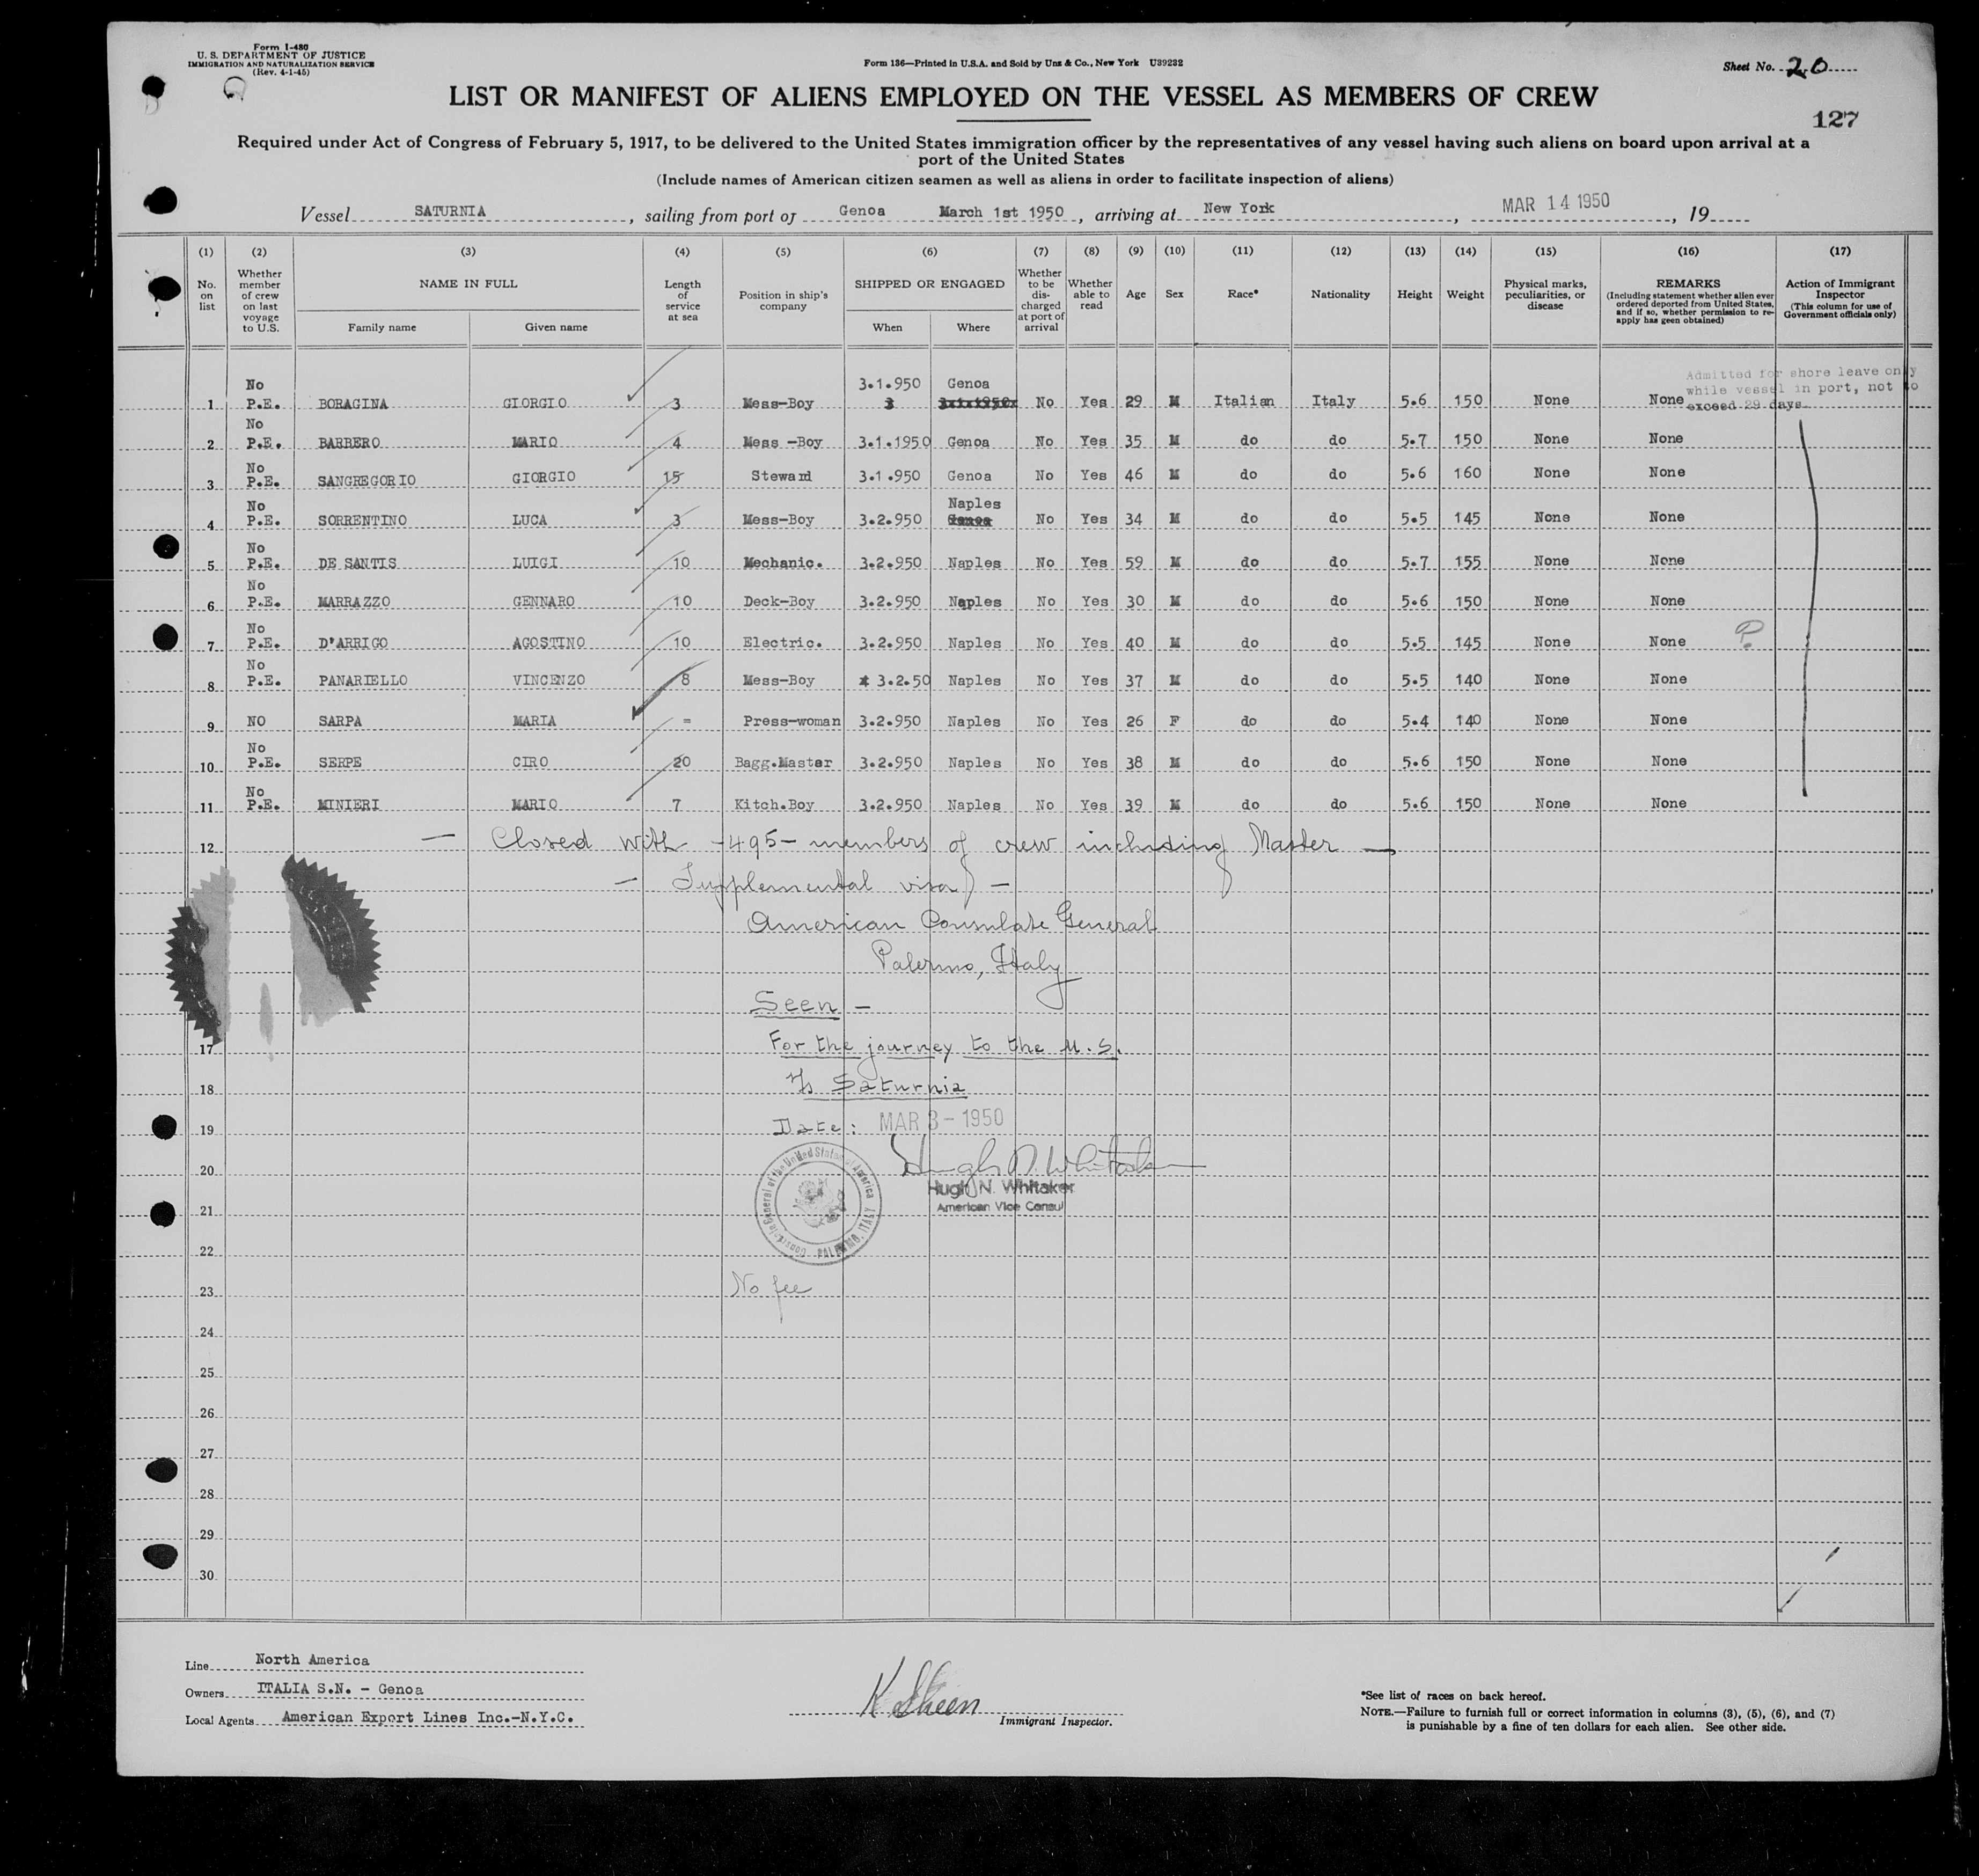 Form I-480
U. S. DEPARTMENT OF JUSTICE
IMMIGRATION AND NATURALIZATION SERVICE
(Rev. 4-1-45)
Form 136—Printed in U.S.A. and Sold by Unz & Co., New York U39232
Sheet No. 20
LIST OR MANIFEST OF ALIENS EMPLOYED ON THE VESSEL AS MEMBERS OF CREW
127
Required under Act of Congress of February 5, 1917, to be delivered to the United States immigration officer by the representatives of any vessel having such aliens on board upon arrival at a
port of the United States
(Include names of American citizen seamen as well as aliens in order to facilitate inspection of aliens)
Vessel SATURNIA, sailing from port of Genoa March 1st 1950, arriving at New York, MAR 14 1950, 19
(1) (2) (3) (4) (5) (6) (7) (8) (9) (10) (11) (12) (13) (14) (15) (16) (17)
No. on list
Whether member of crew on last voyage to U.S.
NAME IN FULL
Family name
Given name
Length of service at sea
Position in ship's company
SHIPPED OR ENGAGED
When
Where
Whether to be discharged at port of arrival
Whether able to read
Age
Sex
Race*
Nationality
Height
Weight
Physical marks, peculiarities, or disease
REMARKS
(Including statement whether alien ever ordered deported from United States, and if so, whether permission to re-apply has geen obtained)
Action of Immigrant Inspector
(This column for use of Government officials only)
Admitted for shore leave only
while vessel in port, not to
exceed 29 days
1 No P.E. BORAGINA GIORGIO 3 Mess-Boy 3.1.950 Genoa No Yes 29 M Italian Italy 5.6 150 None None
2 No P.E. BARBERO MARIO 4 Mess -Boy 3.1.1950 Genoa No Yes 35 M do do 5.7 150 None None
3 No P.E. SANGREGORIO GIORGIO 15 Steward 3.1.950 Genoa No Yes 46 M do do 5.6 160 None None
4 No P.E. SORRENTINO LUCA 3 Mess-Boy 3.2.950 Naples Genoa No Yes 34 M do do 5.5 145 None None
5 No P.E. DE SANTIS LUIGI 10 Mechanic. 3.2.950 Naples No Yes 59 M do do 5.7 155 None None
6 No P.E. MARRAZZO GENNARO 10 Deck-Boy 3.2.950 Naples No Yes 30 M do do 5.6 150 None None
7 No P.E. D'ARRIGO AGOSTINO 10 Electric. 3.2.950 Naples No Yes 40 M do do 5.5 145 None None
8 No P.E. PANARIELLO VINCENZO 8 Mess-Boy 3.2.50 Naples No Yes 37 M do do 5.5 140 None None
9 NO SARPA MARIA = Press-woman 3.2.950 Naples No Yes 26 F do do 5.4 140 None None
10 No P.E. SERPE CIRO 20 Bagg.Master 3.2.950 Naples No Yes 38 M do do 5.6 150 None None
11 No P.E. MINIERI MARIO 7 Kitch.Boy 3.2.950 Naples No Yes 39 M do do 5.6 150 None None
12 — Closed with -495- members of crew including Master —
— Supplemental visa —
American Consulate General
Palermo, Italy
Seen —
17 For the journey to the U.S.
18 Saturnia
19 Date: MAR 3 - 1950
20 Hugh N. Whitaker
Hugh N. Whitaker
21 American Vice Consul
Consulate General of the United States of America
PALERMO, ITALY
22
23 No fee
24
25
26
27
28
29
30
Line North America
Owners ITALIA S.N. - Genoa
Local Agents American Export Lines Inc.-N.Y.C.
Immigrant Inspector.
*See list of races on back hereof.
NOTE.—Failure to furnish full or correct information in columns (3), (5), (6), and (7)
is punishable by a fine of ten dollars for each alien. See other side.